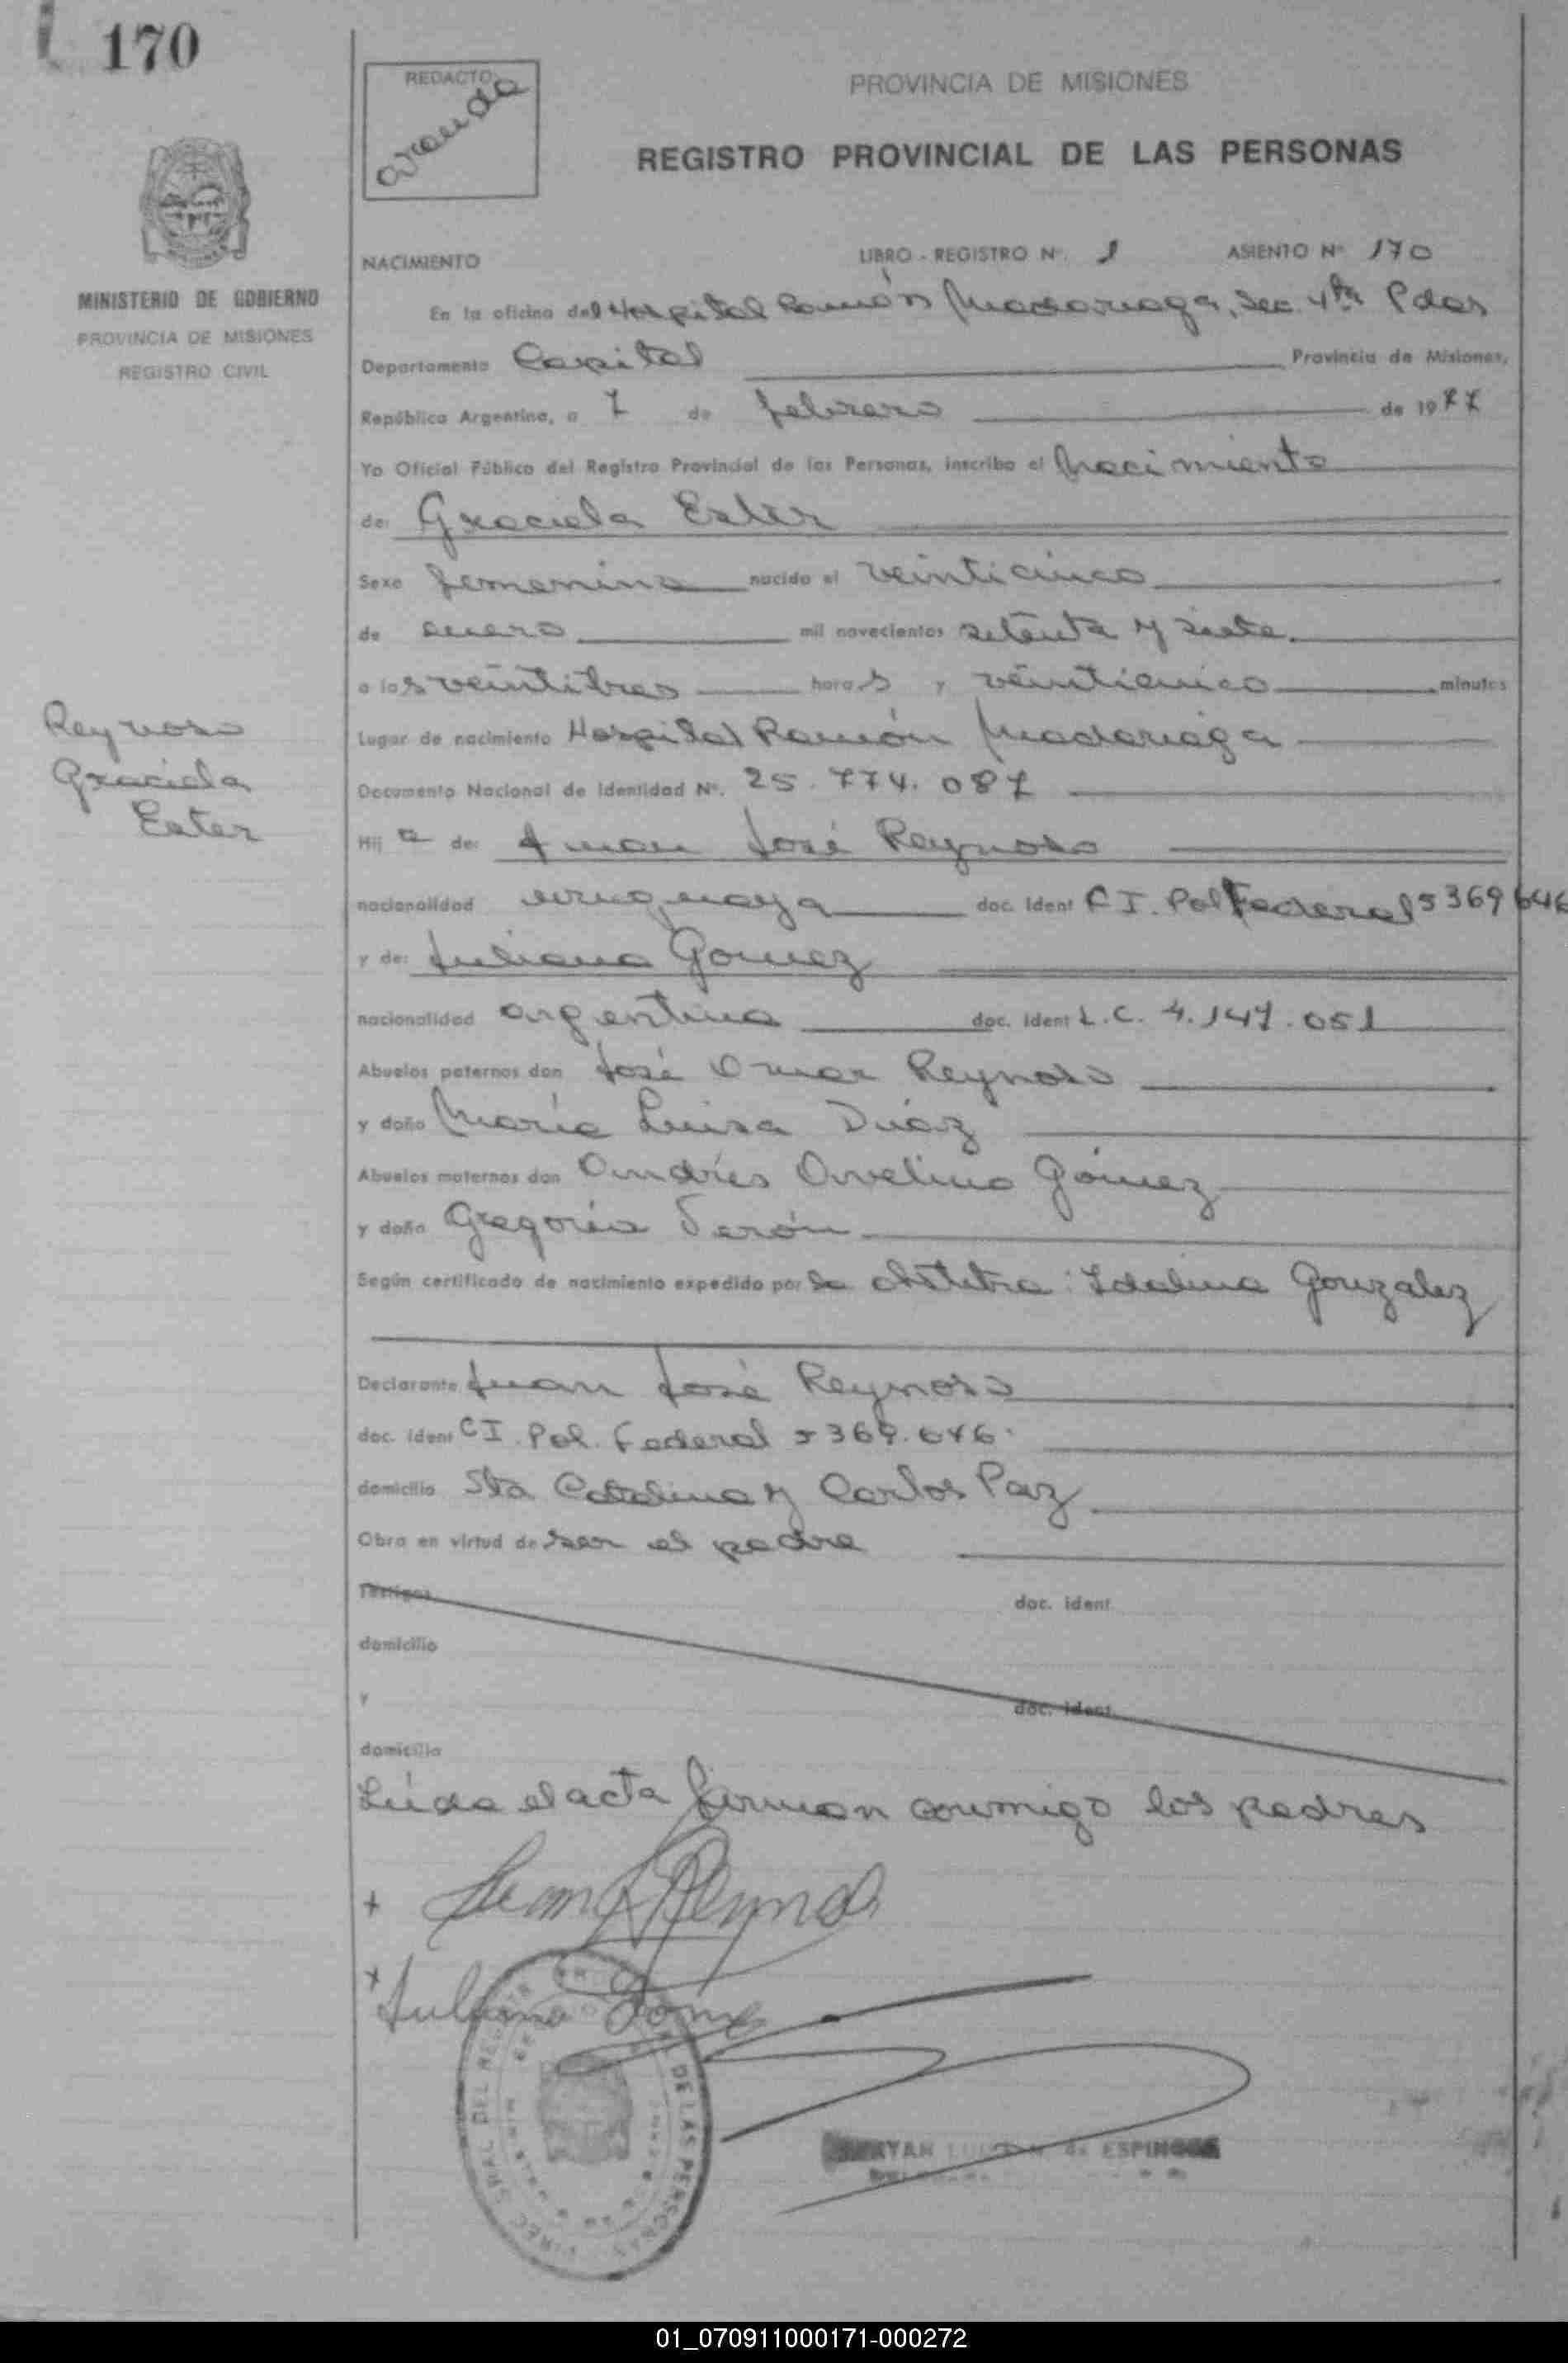 170
REDACTO
Aranda
PROVINCIA DE MISIONES
REGISTRO PROVINCIAL DE LAS PERSONAS
MINISTERIO DE GOBIERNO
PROVINCIA DE MISIONES
REGISTRO CIVIL
NACIMIENTO LIBRO - REGISTRO Nº. 1 ASIENTO Nº 170
En la oficina del Hospital Ramón Madariaga, Sec. 4ta Pdas
Departamento Capital Provincia de Misiones,
República Argentina, a 7 de febrero de 1977
Yo Oficial Público del Registro Provincial de las Personas, inscribo el Nacimiento
de: Graciela Ester
Sexo femenino nacido el veinticinco
de enero mil novecientos setenta y siete
a las veintitres horas y veinticinco minutos
Reynoso
Graciela
Ester
Lugar de nacimiento Hospital Ramón Madariaga
Documento Nacional de Identidad Nº. 25.774.087
Hij a de: Juan José Reynoso
nacionalidad uruguaya doc. Ident C I. Pol Federal 5369646
y de: Juliana Gomez
nacionalidad argentina doc. Ident L.C. 4.147.051
Abuelos paternos don José Omar Reynoso
y doña María Luisa Diáz
Abuelos maternos don Andrés Avelino Gómez
y doña Gregoria Terón
Según certificado de nacimiento expedido por la obstetra: Idalina Gonzalez
Declarante Juan José Reynoso
doc. Ident CI. Pol. Federal 5369.646.
domicilio Sta Catalina y Carlos Paz
Obra en virtud de ser el padre
Testigos doc. ident.
domicilio
y doc. ident.
domicilio
Leída el acta firman conmigo los padres
+ Juan J Reynoso
+ Juliana Gómez
DE LAS PERSONAS
de ESPINOSA
01_070911000171-000272